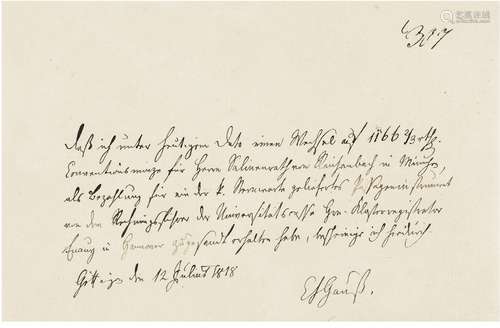 Daß ich unter heutigem Dato einen Wechsel auf 1166 2/3 rth.
Conventionsmünze für Herrn Salinenrath von Reichenbach in München
als Bezahlung für ein der k. Sternwarte geliefertes Passageninstrument
von dem Rechnungsführer der Universitätscasse Hrn. Klosterregistrator
in Hannover zugesandt erhalten habe, bescheinige ich hiedurch
Göttingen den 12 Julius 1818
CFGauß.